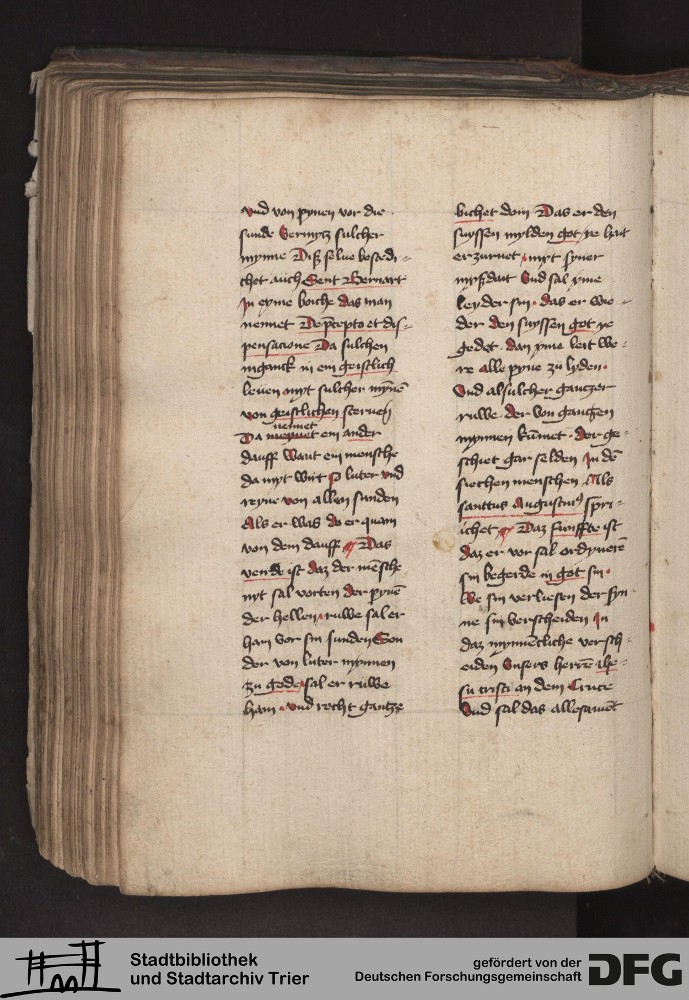 vnd von pynen vor die
sunde Vermytz sulcher
mynne Diß selue bestedi-
chet auch Sent Bernart
Jn eyme boiche das man
nennet De p̄cepto et dis-
pensacione Da sulchen
inganck in ein geistlich
leuen myt sulcher mȳnē
von geistlichen steruen
nennet
Da ein ander
dauff Want ein mensche
da myt wirt so luter vnd
reyne von allen sunden
Als er was do er quam
von dem dauff Das
vende ist daz der mēsche
nyt sal vorten der pynē
der hellen ruwe sal er
han vor sin sunden Son
der von luter mynnen
zu gode sal er ruwe
han vnd recht gantze
bichet doin Das er den
suyssen mylden got ye hait
erzurnet myt syner
myßdait Vnd sal yme
leyder sin das er wie-
der den suyssen got ye
gedet dan yme leit we-
re alle pyne zu lyden
Vnd alsulcher gantzer
ruwe der von gantzen
mynnen kūmet der ge-
schiet gar selden Jn dē
siechen menschen Als
sanctus Augustinus spri-
ichet Daz funffte ist
daz er vor sal ordyneren
sin begerde in got sin
We sin verliesen der syn-
ne sin verscheiden Jn
daz mynnēcliche versch-
eiden Vnsers herrē ihe-
su cristi an dem Cruce
Vnd sal das allesamēt
Stadtbibliothek
und Stadtarchiv Trier
gefördert von der
Deutschen Forschungsgemeinschaft
DFG